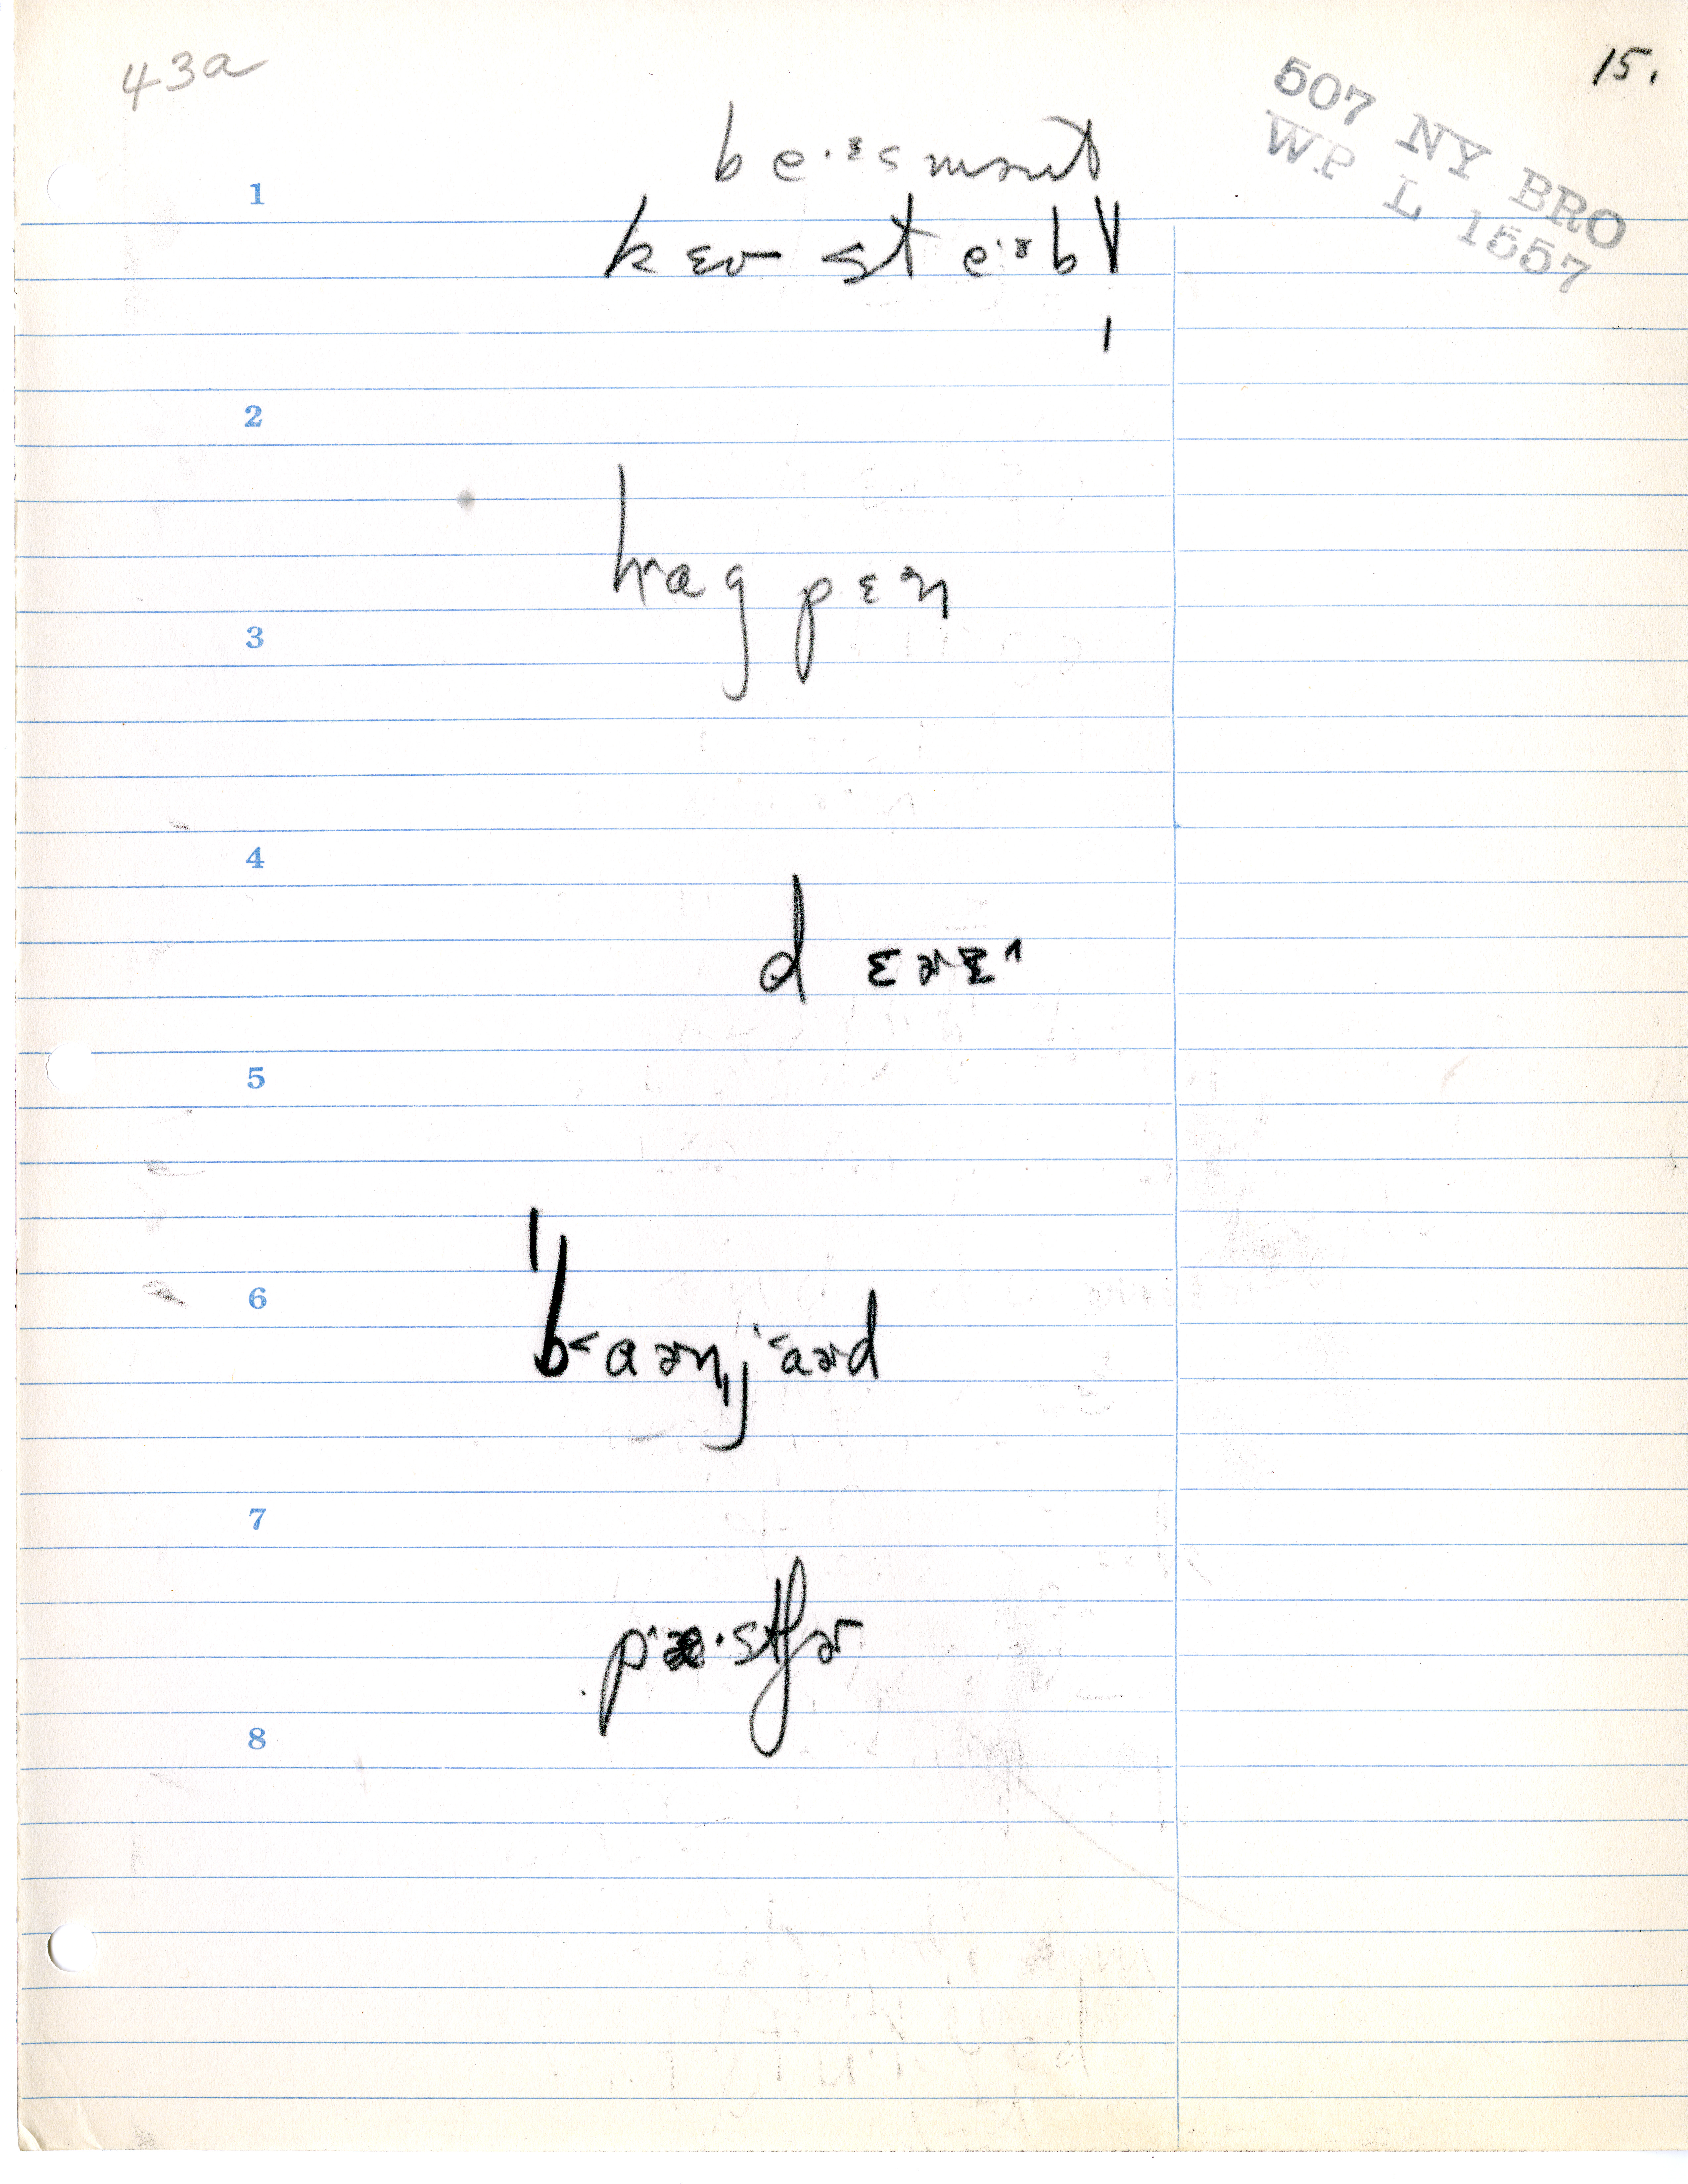 43a
15.
507 NY BRO
W.P L 1557
be·ᵊsmənt
1
kɛʊ steˑᵊbl̩
2
hɑgpɛn
3
4
dɛɚɪ^
5
6
ˈb<aɚnˌj<aɚd
7
p^æ·stʃɚ
8